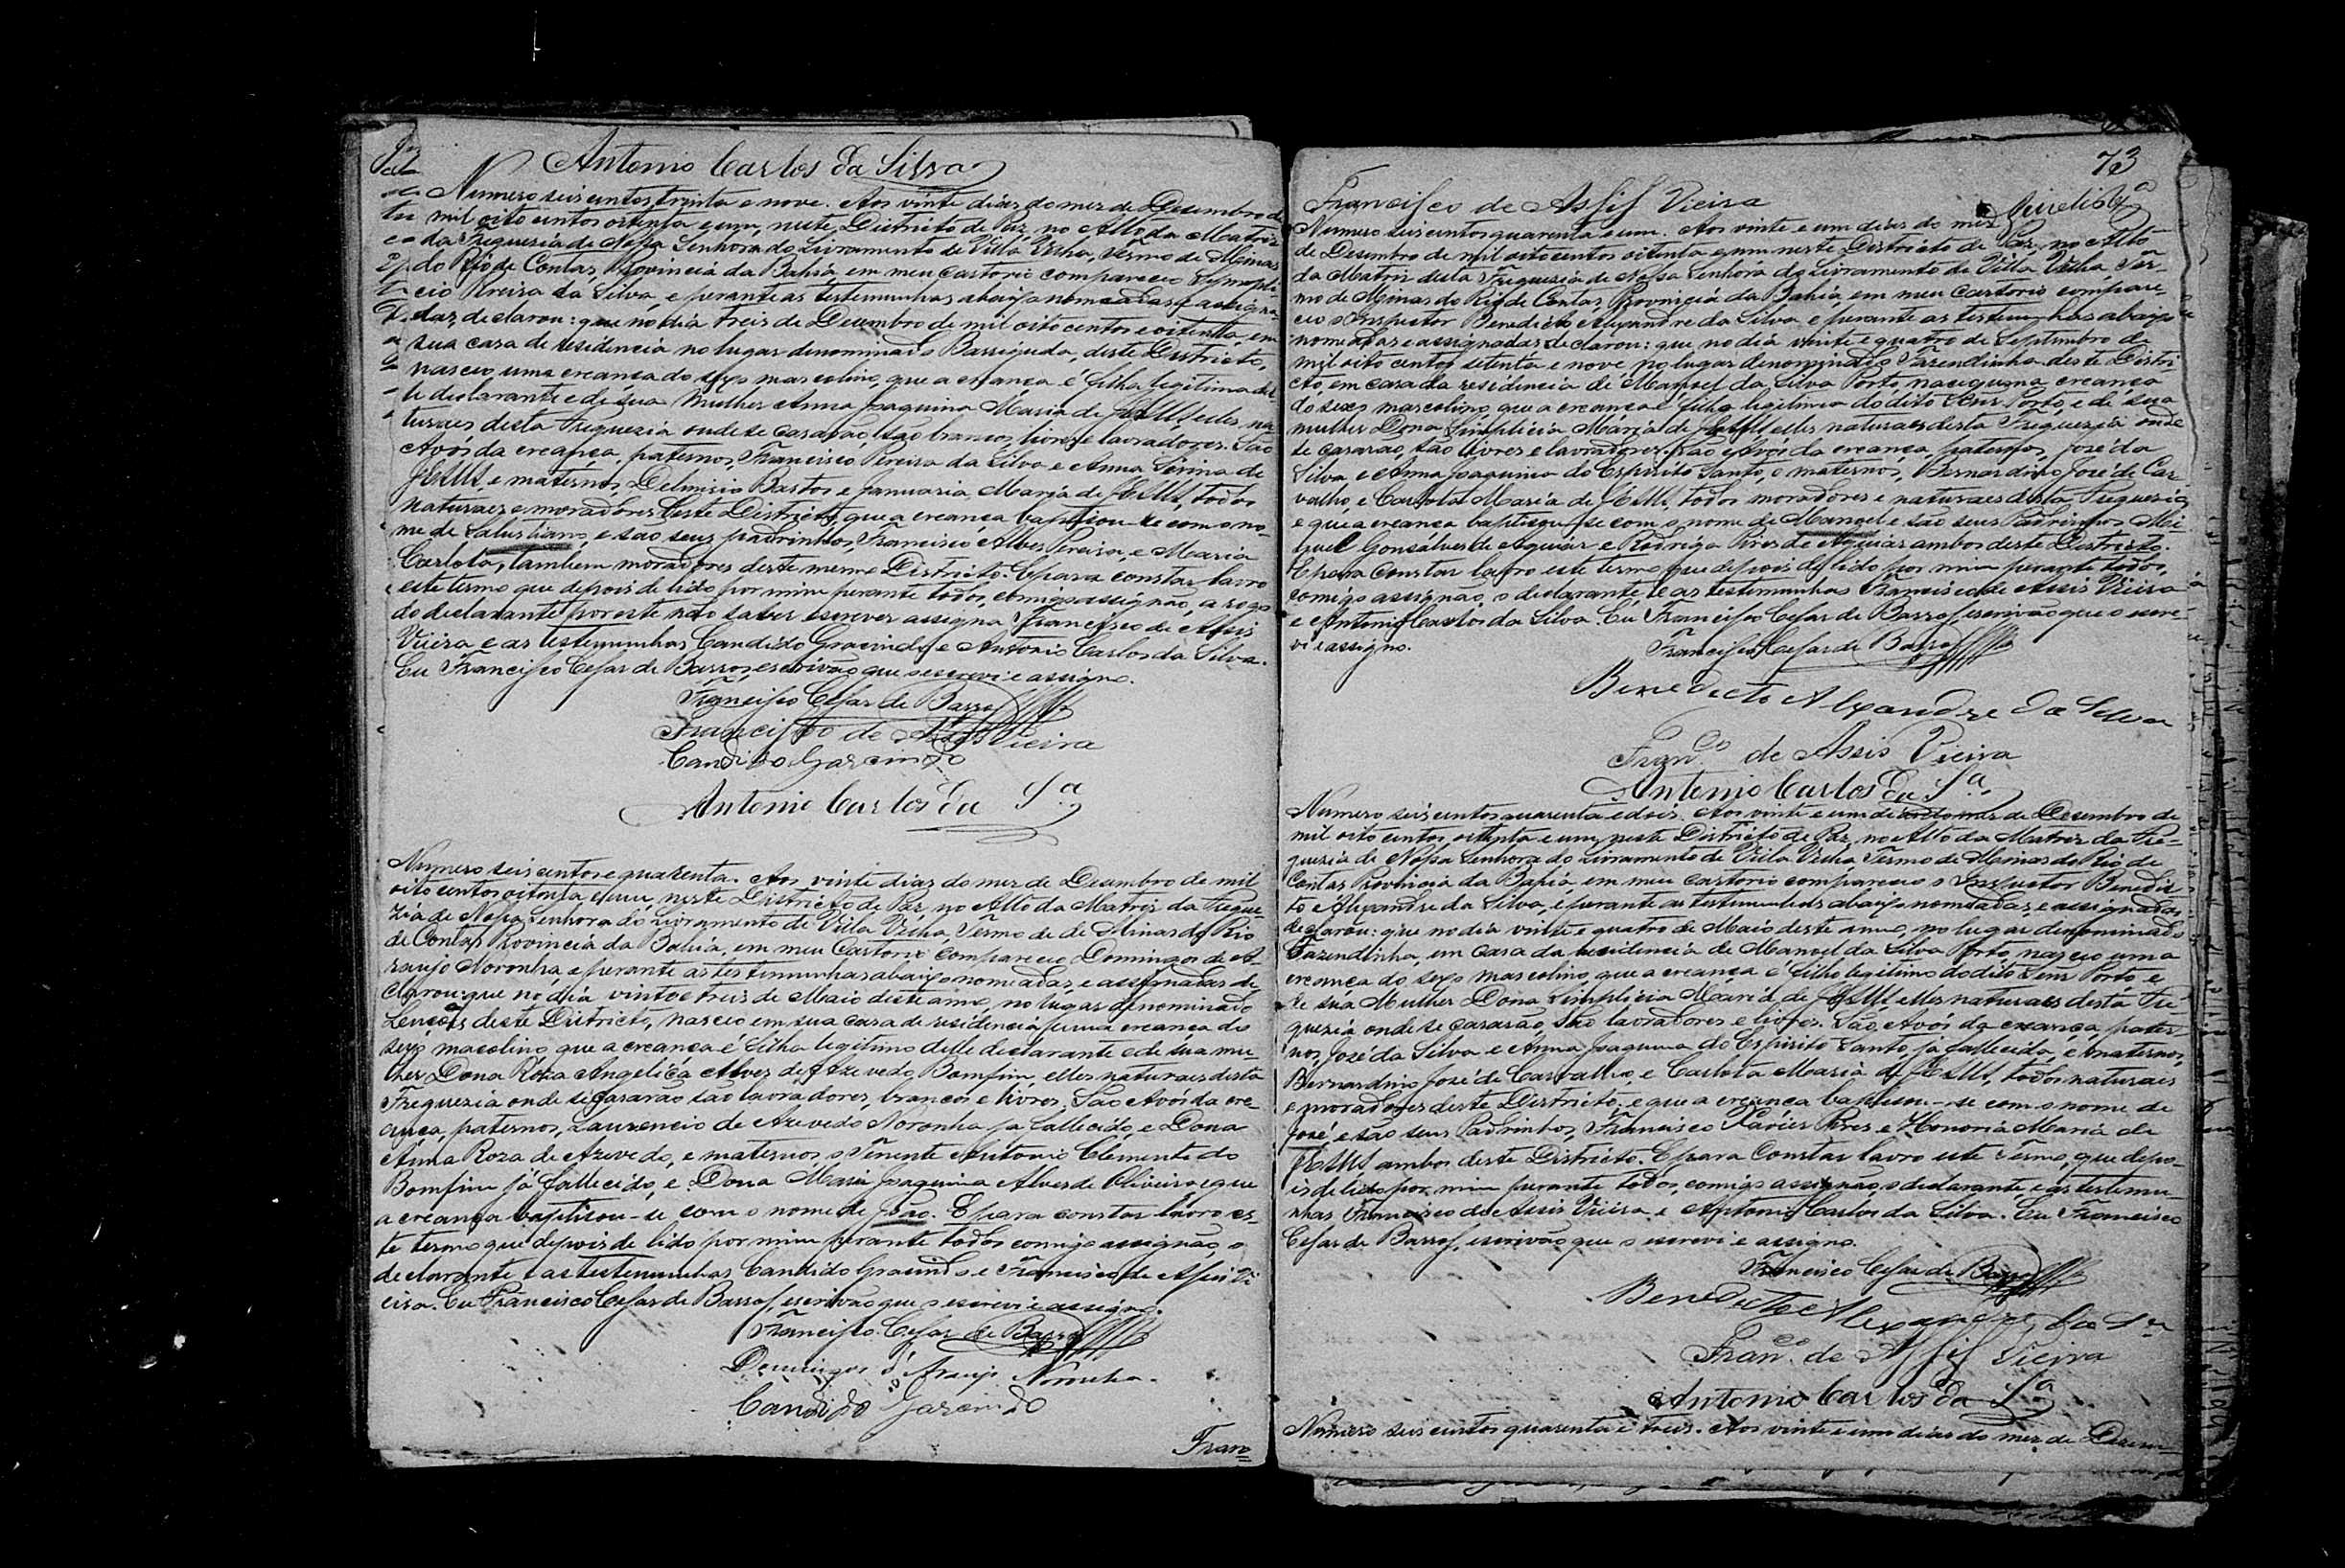 Antonio Carlos da Silva
Numero seis centos trinta e nove. Aos vinte dias do mez de Desembro de
mil oito centos oitenta e um, neste Districto de Paz, no Alto da Matriz
da Freguesia de Nossa Senhora do Livramento de Villa Velha, Termo de Minas
do Rio de Contas, Provincia da Bahia, em meu cartorio compareceo
Pereira da Silva, e perante as testemunhas abaixo nomeadas e assigna
das, declarou: que no dia treis de Desembro de mil oito centos e oitenta, em
sua casa de residencia no lugar denominado Barriguda, deste Districto,
nasceo uma creança do sexo masculino, que a creança é filha legitima del
le declarante e de sua Mulher Anna Joaquina Maria de JESUS, elles, na
turaes desta Freguezia onde se casarão, são brancos, livres e lavradores. São
Avós da creança, paternos, Francisco Pereira da Silva e Anna de
JESUS e maternos, Bastos e Januaria Maria de JESUS, todos
naturaes e moradores deste Districto, que a creança baptisou-se com o no-
me de Salustiano, e são seus padrinhos, Francisco Alves Pereira, e Maria
Carlota, tambem moradores deste mesmo Districto. E para constar lavro
este termo que depois de lido por mim perante todos, comigo assignão, a rogo
do declarante por este não saber escrever assigna Francisco de Assis
Vieira e as testemunhas Candido Gracindo e Antonio Carlos da Silva.
Eu Francisco Cesar de Barros, escrivão que o escrevi e assigno.
Francisco Cesar de Barros
Francisco de Assis Vieira
Candido Garcindo
Antonio Carlos da Sª
Numero seis centos e quarenta. Aos vinte dias do mez de Desembro de mil
oito centos oitenta e um, neste Districto de Paz, no Alto da Matriz da Fregue-
zia de Nossa Senhora do Livramento de Villa Velha, Termo de de Minas do Rio
de Contas Provincia da Bahia, em meu Cartorio compareceo Domingos de A-
raujo Noronha, e perante as testemunhas abaixo nomeadas, e assignadas de-
clarou: que no dia vinte e treis de Maio deste anno, no lugar denominado
Lençóes deste Districto, nasceo em sua casa de residencia uma creança do
sexo masculino, que a creança é filha legitimo delle declarante e de sua mu-
lher Dona Roza Angelica Alves de Azevedo Bomfim, elles naturaes desta
Freguezia onde se casarão são lavradores, brancos e livres. São Avós da cre-
ança, paternos, Laurencio de Azevedo Noronha já fallecido, e Dona
Anna Roza de Azevedo, e maternos o Tenente Antonio Clemente do
Bomfim já fallecido, e Dona Maria Joaquina Alves de Oliveira e que
a creança baptisou-se com o nome de João. E para constar lavro es-
te termo que depois de lido por mim perante todos comigo assignão, o
declarante e as testemunhas Candido Gracindo e Francisco de Assis Vi
eira. Eu Francisco Cesar de Barros, escrivão que o escrevi e assigno.
Francisco Cesar de Barros
Domingos d' Araujo Noronha
Candido Garcindo
Fran
73
Francisco de Assis Vieira
Numero seis centos quarenta e um. Aos vinte e um dias do mez
de Desembro de mil oito centos oitenta e um neste Districto de Paz, no Alto
da Matriz desta Freguezia de Nossa Senhora do Livramento de Villa Velha Ter-
mo de Minas do Rio de Contas, Provincia da Bahia em meu Cartorio compare-
ceo o Inspector Benedicto Alexandre da Silva e perante as testemunhas abaixo
nomeadas e assignadas declarou: que no dia vinte e quatro de Septembro de
mil oito centos setenta e nove, no lugar denominado Fazendinha deste Distri
cto, em casa da residencia de Manoel da Silva Porto, nasceo uma creança
do sexo masculino, que a creança é filha legitima do dito Senr Porto, e de sua
mulher Dona Simplicia Maria de JESUS elles naturaes desta Freguezia onde
se casarão, são livres e lavradores. São Avós da creança, paternos, José da
Silva, e Anna Joaquina do Espirito Santo, e maternos, Bernardino José de Car-
valho, e Carlota Maria de JESUS, todos moradores e naturaes desta Freguezia
e que a creança baptisou-se com o nome de Manoel e são seus Padrinhos Mi-
guel Gonsalves de Aguiar e Rodrigo Pires de Aguiar ambos deste Districto.
E para constar lavro este termo que depois de lido por mim perante todos,
comigo assignão, o declarante e as testemunhas Francisco de Assis Vieira
e Antonio Carlos da Silva. Eu Francisco Cesar de Barros, escrivão que o escre-
vi e assigno.
Francisco Cesar de Barros
Benedicto Alexandre da Silva
Franco de Assis Vieira
Antonio Carlos da Sª
Numero seis centos quarenta e dois. Aos vinte e um dias do mez de Desembro de
mil oito centos oitenta e um, neste Districto de Paz, no Alto da Matriz da Fre-
guezia de Nossa Senhora do Livramento de Villa Velha Termo de Minas do Rio de
Contas Provincia da Bahia em meu cartorio compareceo o Inspector Benedic
to Alexandre da Silva, e perante as testemunhas abaixo nomeadas, e assignadas
declarou: que no dia vinte e quatro de Maio deste anno, no lugar denominado
Fazendinha, em casa da residencia de Manoel da Silva Porto, nasceo uma
creança do sexo masculino que a creança é filho legitimo do dito Senr Porto, e
de sua Mulher Dona Simplicia Maria de JESUS elles naturaes desta Fre-
guezia onde se casarão, são lavradores e livres. São Avós da creança, pater
nos, José da Silva e Anna Joaquina do Espirito Santo, já fallecida, e maternos,
Bernardino José de Carvalho, e Carlota Maria de JESUS, todos naturaes
e moradores deste Districto: e que a creança baptisou-se com o nome de
José e são seus Padrinhos, Francisco Xavier Pires e Honoria Maria de
JESUS ambos deste Districto. E para Constar lavro este Termo, que depo-
is de lido por mim perante todos, comigo assignão, o declarante, e as testemu-
nhas Francisco de Assis Vieira e Antonio Carlos da Silva. Eu Francisco
Cesar de Barros, escrivão que o escrevi e assigno.
Francisco Cesar de Barros
Benedicto Alexandre da Sª
Franco de Assis Vieira
Antonio Carlos da Sª
Numero seis centos quarenta e treis. Aos vinte e um dias do mez de Desem-